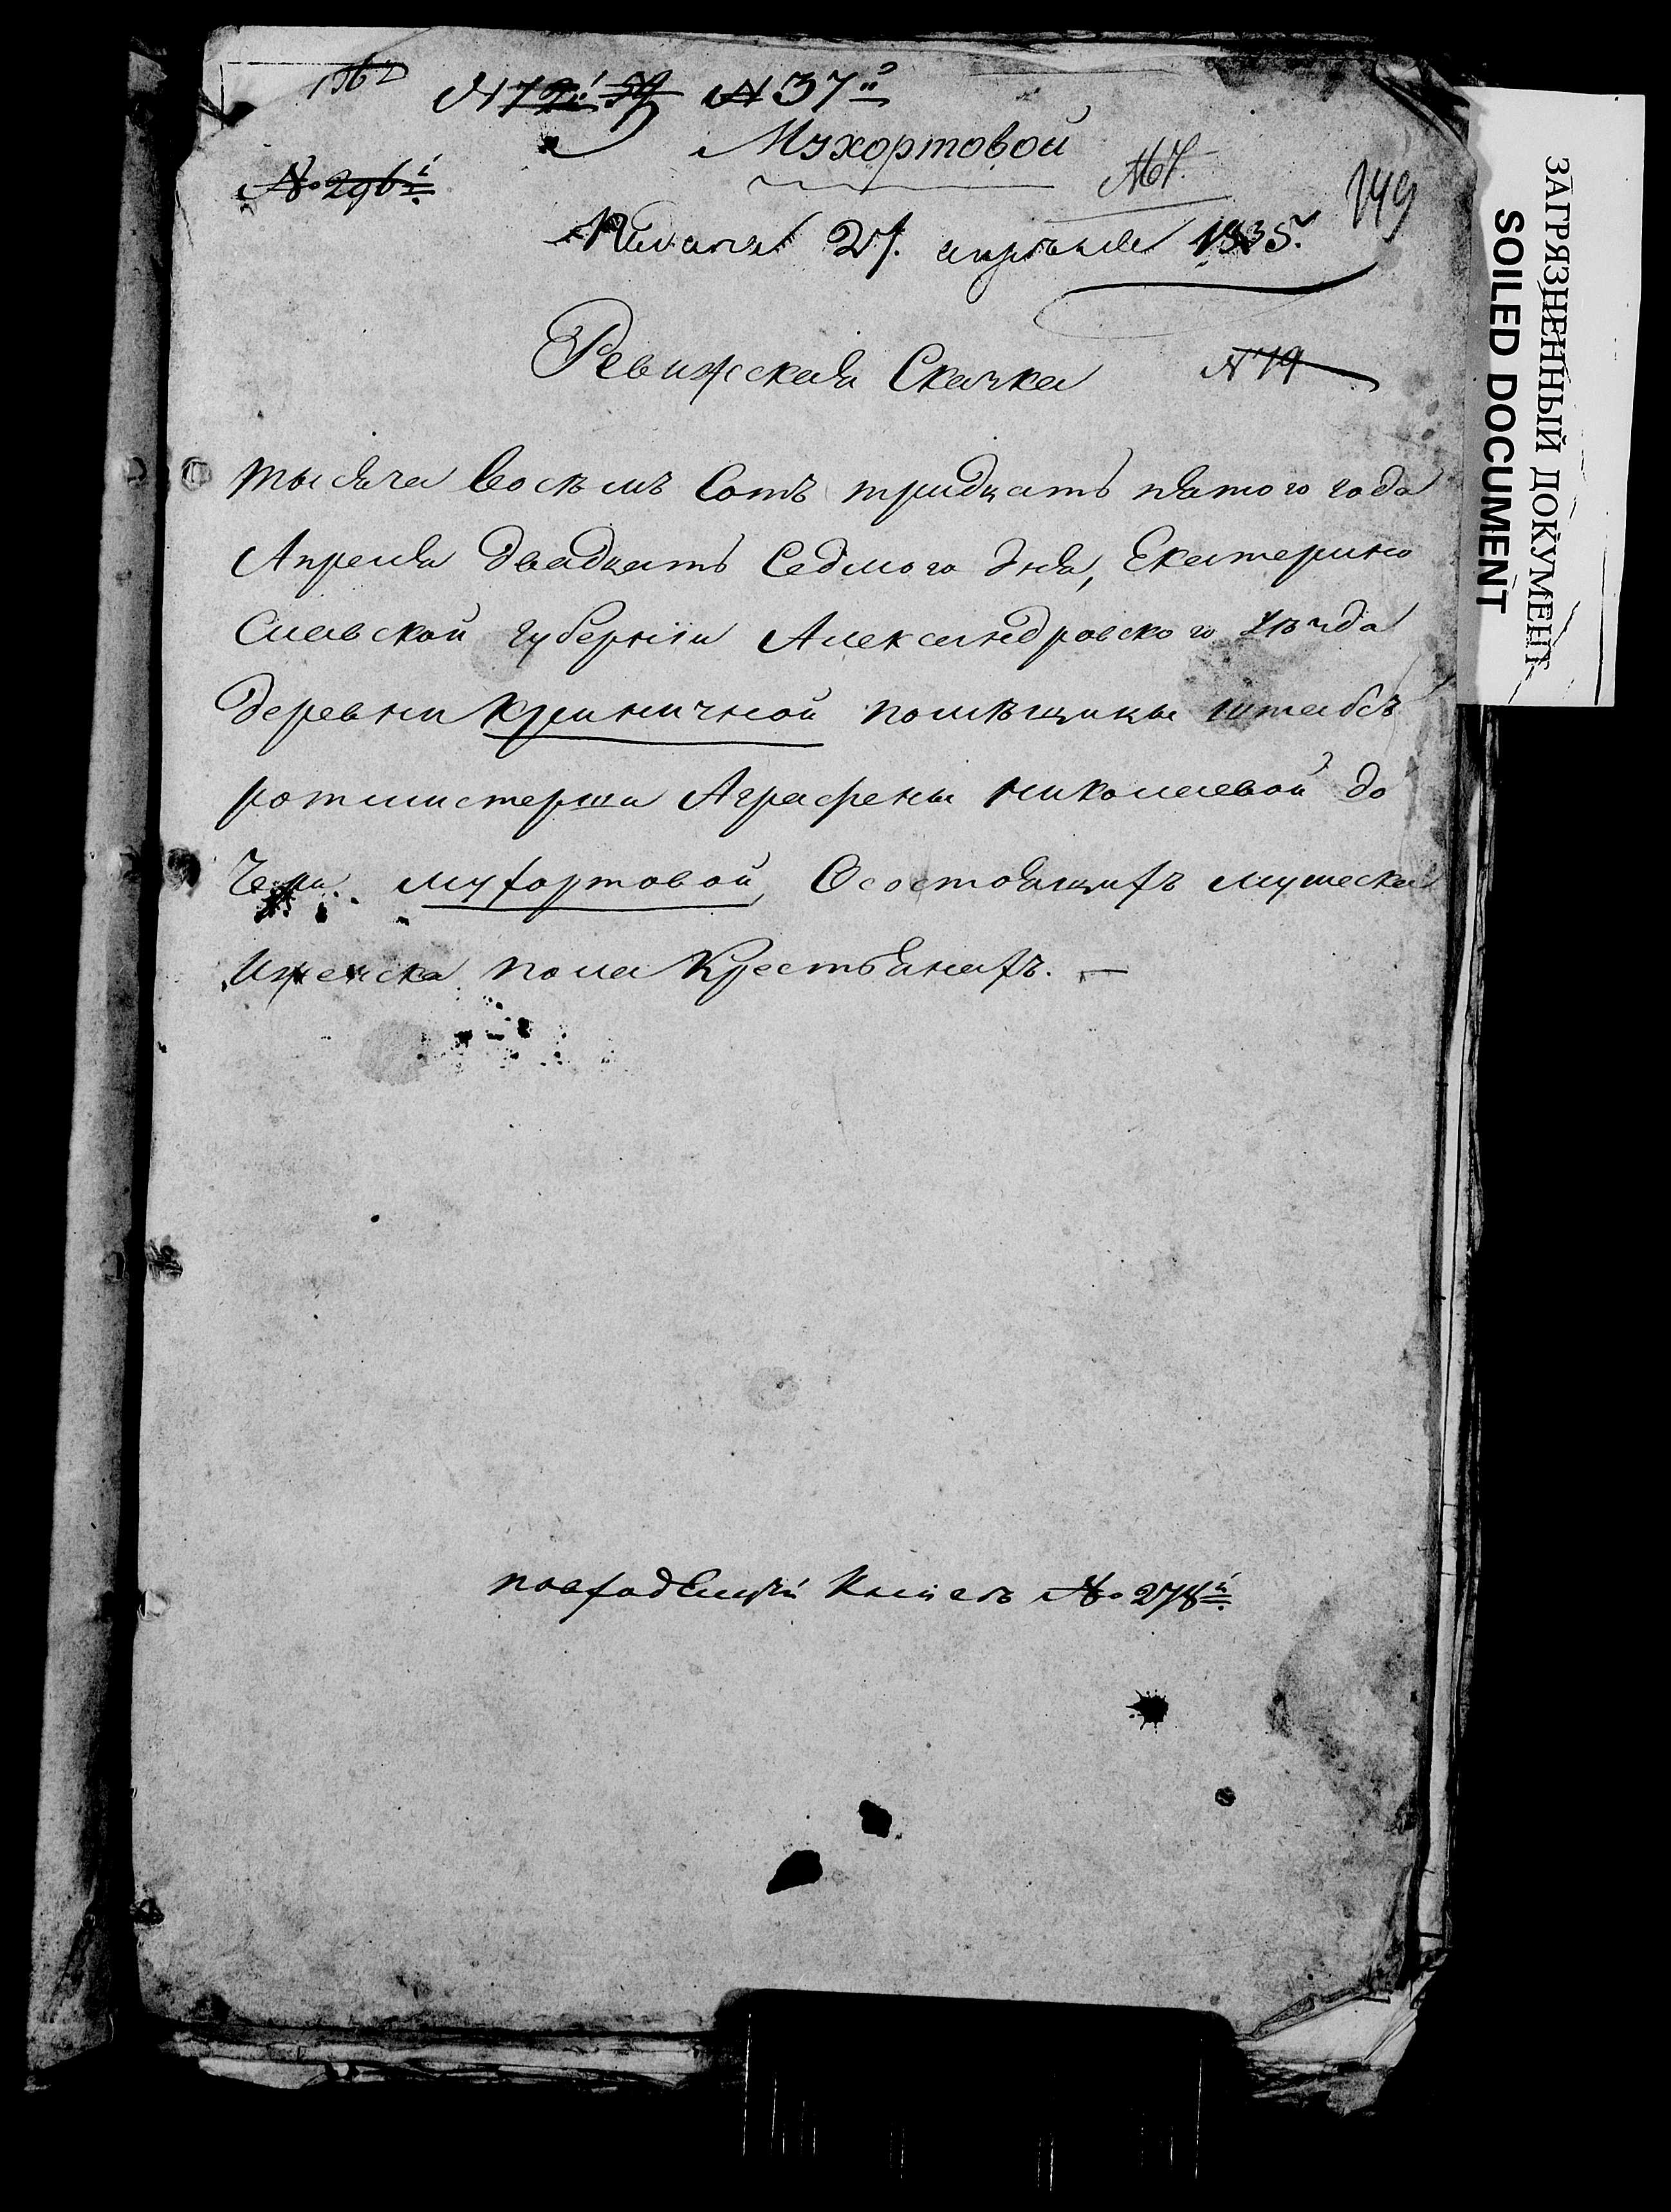 N 37й
Мухортовой
№ 296й
149
27. апрѣля 1835.
Ревижская Скаска
N 79
тысяча восѣмъ Сотъ тридцать пятого года
Апреля двадцать Седмого дня, Екатерино
Славской губернiи Александровского уѣзда
деревни Криничной помѣщицы штабсъ
ротмистерши Аграфены Николаевой до
Чери. Мухортовой, Осостоящихъ мужеска
Иженска пола Крестьянахъ. —
повходящей Книге № 278й
ЗАГРЯЗНЕННЫЙ ДОКУМЕНТ
SOILED DOCUMENT